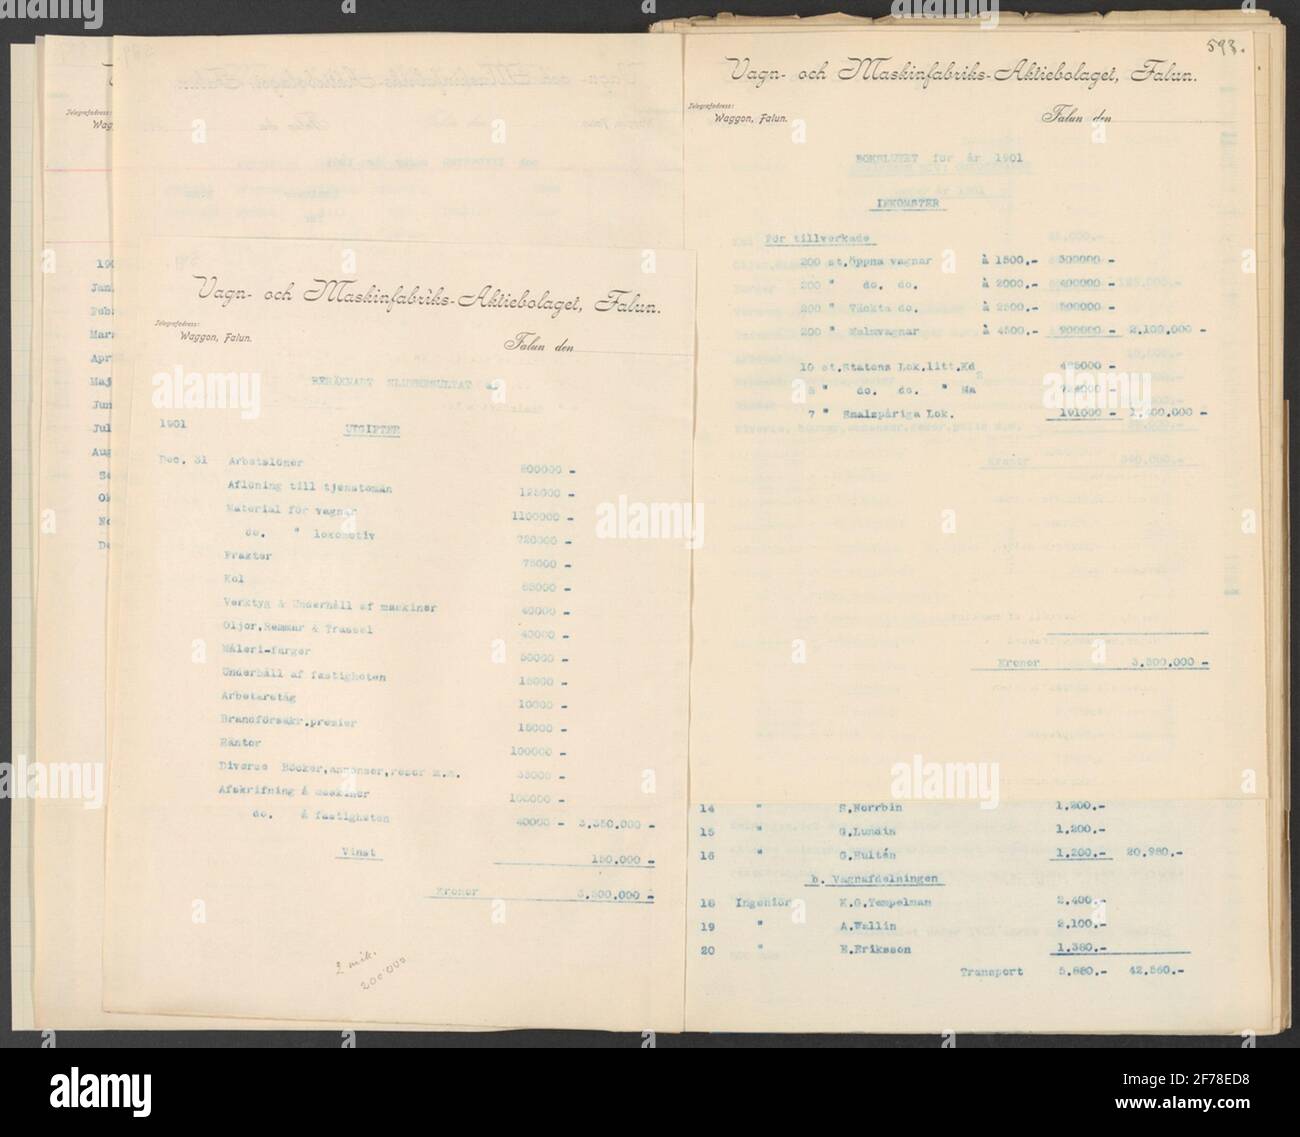 Vagn- och Maskinfabriks-Aktiebolaget, Falun.
Telegrafadress:
Waggon, Falun.
Falun den
BERÄKNADT SLUTRESULTAT
1901
UTGIFTER
Dec. 31 Arbetslöner 800000 -
Aflöning till tjenstemän 125000 -
Material för vagnar 1100000 -
do. " lokomotiv 720000 -
Frakter 75000 -
Kol 65000 -
Verktyg & Underhåll af maskiner 40000 -
Oljor, Remmar & Trassel 40000 -
Måleri-färger 50000 -
Underhåll af fastigheten 15000 -
Arbetaretåg 10000 -
Brandförsäkr.premier 15000 -
Räntor 100000 -
Diverse Böcker, annonser, resor m.m. 55000 -
Afskrifning å maskiner 100000 -
do. å fastigheten 40000 - 3,350,000 -
Vinst 150,000 -
Kronor 3,500,000 -
2 mik.
200'000
190
Jan
Feb
Mar
Apr
Maj
Jun
Jul
Aug
Se
Ok
No
De
593.
Vagn- och Maskinfabriks-Aktiebolaget, Falun.
Telegrafadress:
Waggon, Falun.
Falun den
BOKSLUTET för år 1901
INKOMSTER
För tillverkade
200 st. Öppna vagnar à 1500,- 300000 -
200 " do. do. à 2000,- 400000 -
200 " Täckta do. à 2500,- 500000 -
200 " Malmvagnar à 4500,- 900000 - 2,100,000 -
10 st. Statens Lok.litt.Kd 485000 -
8 " do. do. " Ma 724000 -
7 " Smalspåriga Lok. 191000 - 1,400,000 -
Kronor 3,500,000 -
14 " S.Norrbin 1,200.-
15 " G.Lundin 1,200.-
16 " G.Hultén 1,200.- 20,980.-
b. Vagnafdelningen
18 Ingeniör K.G.Tempelman 2,400.-
19 " A.Wallin 2,100.-
20 " E.Eriksson 1,380.-
Transport 5,880.- 42,560.-
alamy
alamy
Image ID: 2F78ED8
www.alamy.com